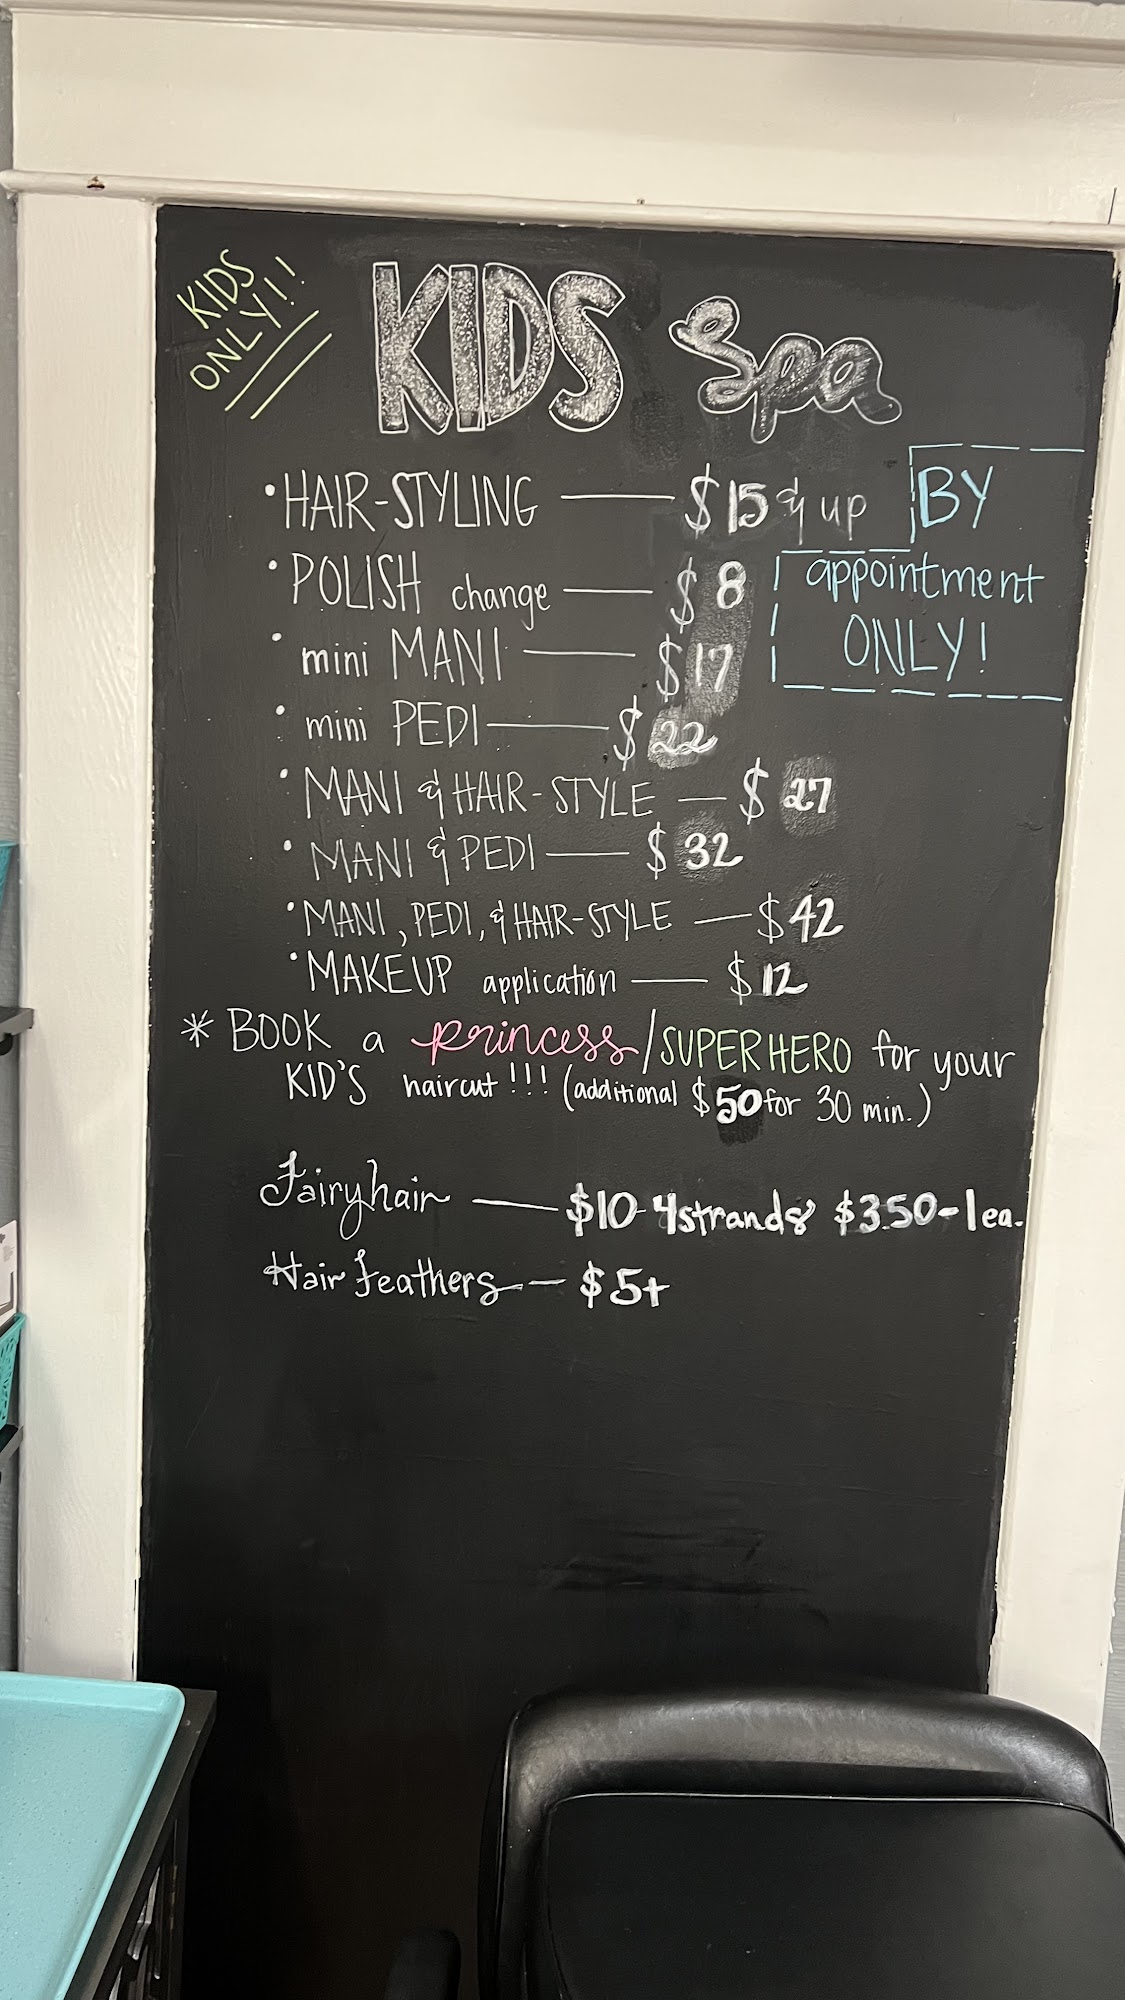 KIDS
ONLY!!
KIDS Spa
• HAIR-STYLING — $15 & up
BY
appointment
ONLY!
• POLISH change — $8
• mini MANI — $17
• mini PEDI — $22
• MANI & HAIR-STYLE — $27
• MANI & PEDI — $32
• MANI, PEDI, & HAIR-STYLE — $42
• MAKEUP application — $12
* BOOK a princess/SUPERHERO for your
KID'S haircut!!! (additional $50 for 30 min.)
Fairyhair — $10-4strands $3.50-1ea.
Hair feathers — $5+